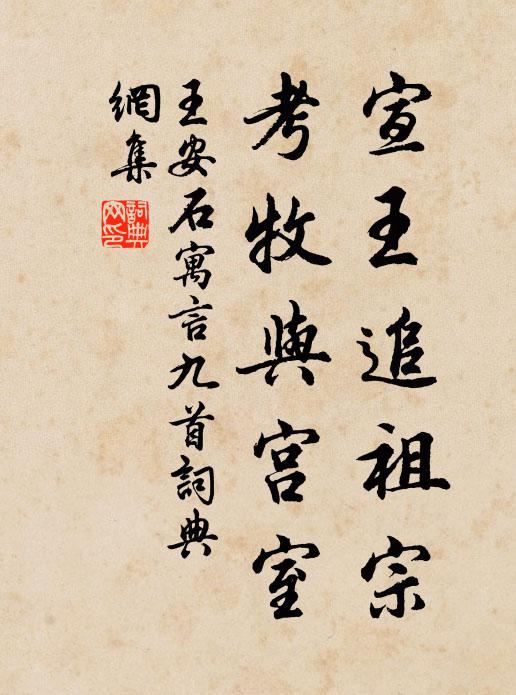 宣王追祖宗
考牧與宮室
王安石寓言九首詞典
網集
詞典
网印